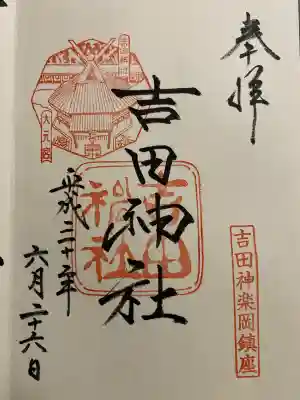 奉拝
吉田神楽岡鎮座
吉田神社
吉田神社
大元宮
平成三十年
六月二十六日